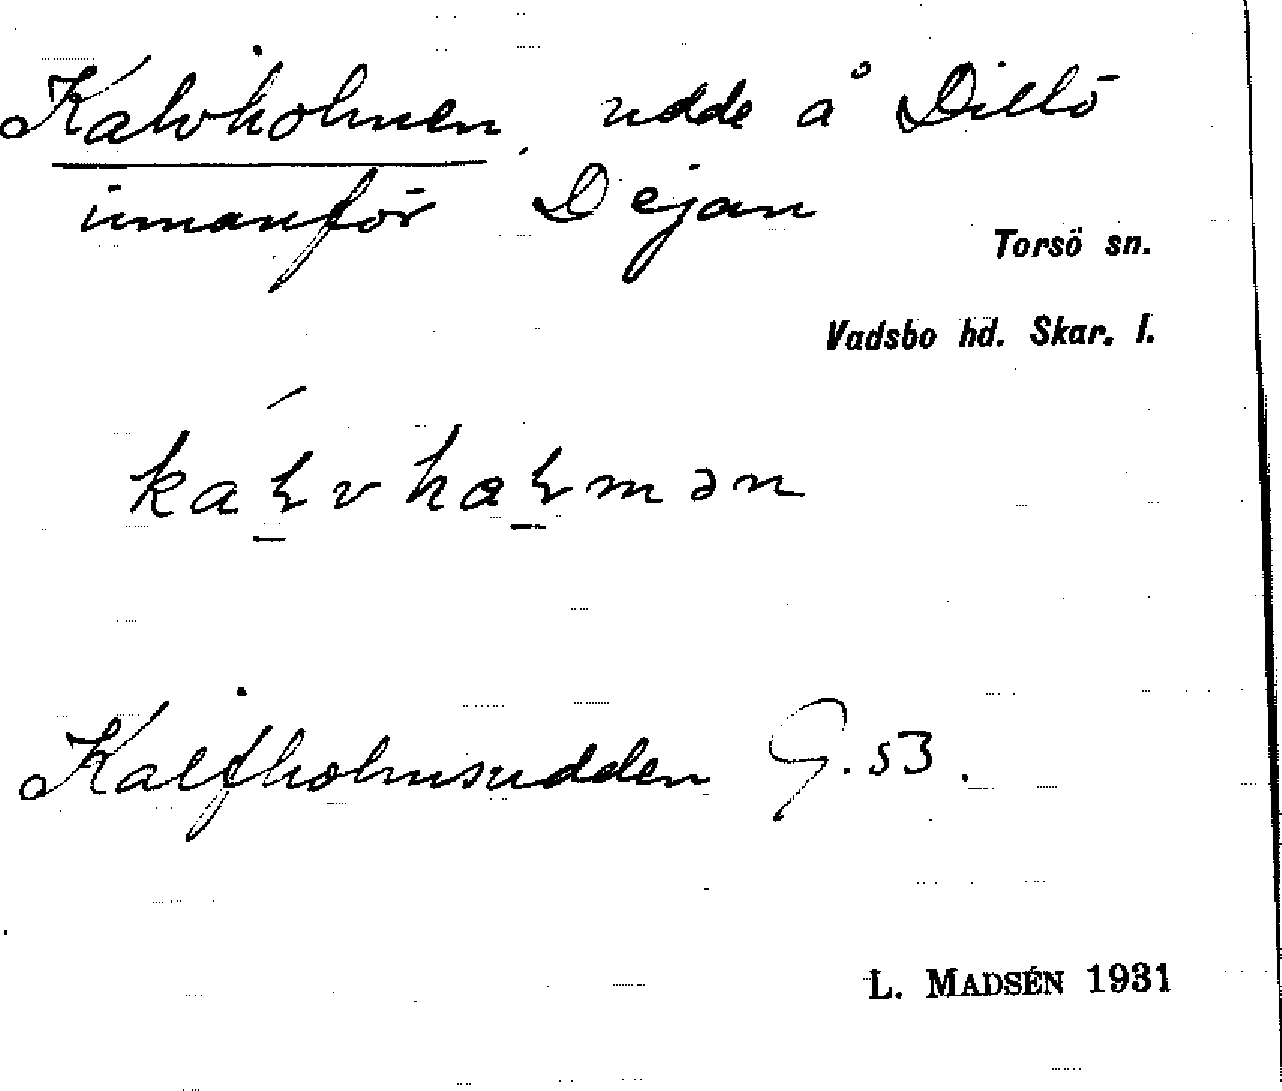 Kalvholmen, udde å Dillö
innanför Dejan
Torsö sn.
Vadsbo hd. Skar. l.
Kalfholmsudden G. 53.
L. MADSÉN 1931